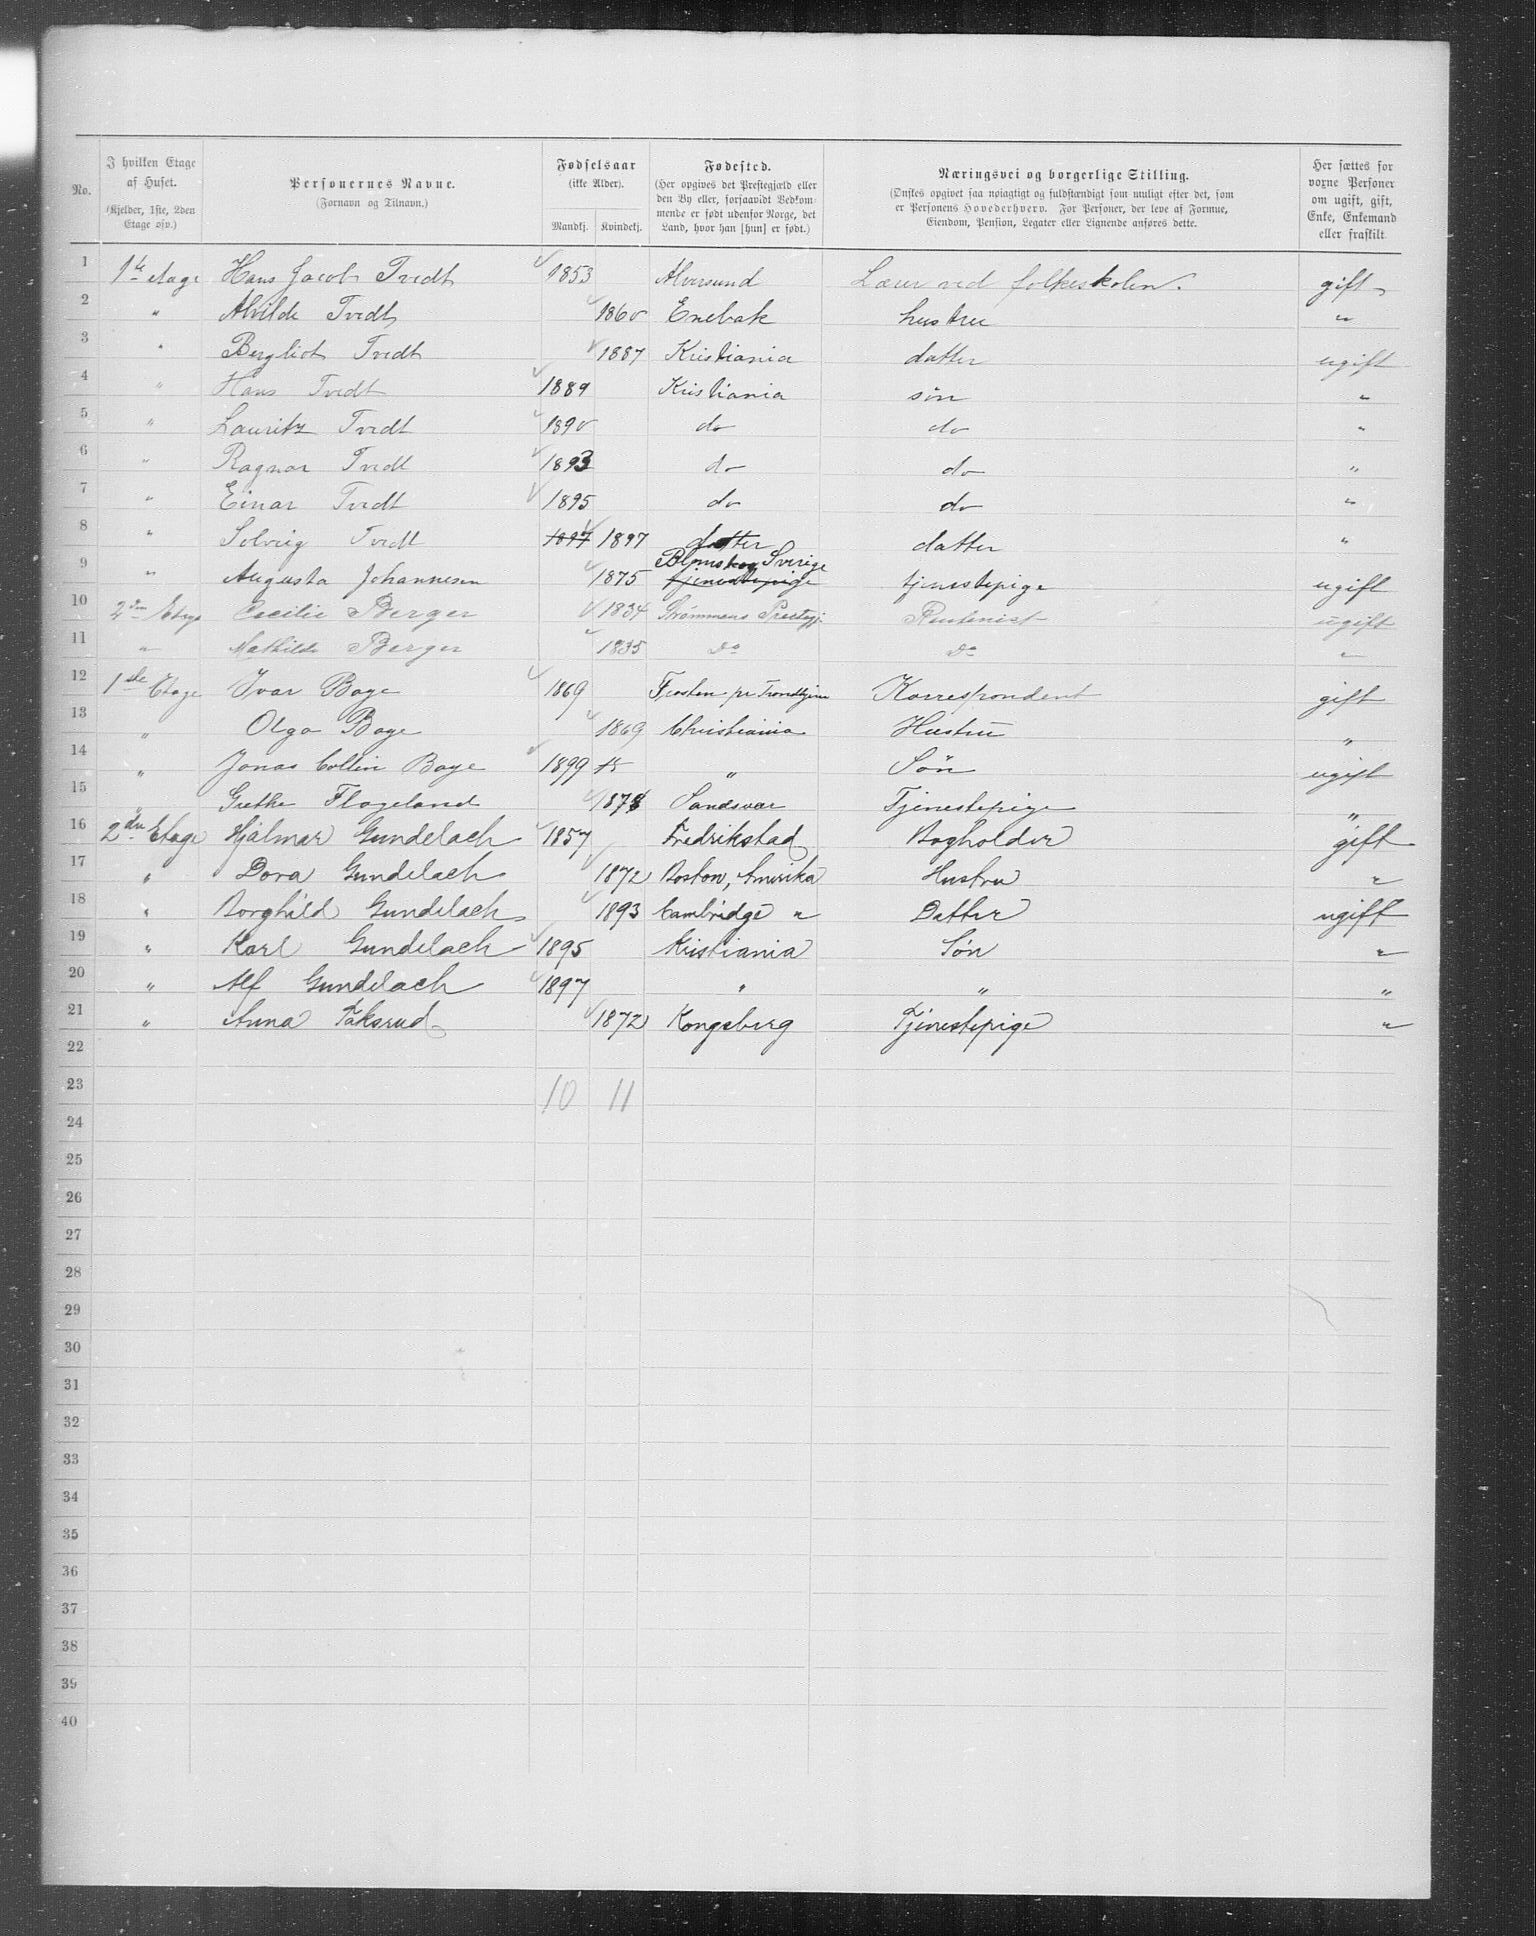 No. | I hvilken Etage af Huset. (Kjelder, 1ste, 2den Etage osv.) | Personernes Navne. (Fornavn og Tilnavn.) | Fødselsaar (ikke Alder). Mandkj. | Kvindekj. | Fødested. (Her opgives det Prestegjæld eller den By eller, forsaavidt Vedkommende er født udenfor Norge, det Land, hvor han [hun] er født.) | Næringsvei og borgerlige Stilling. (Ønskes opgivet saa nøiagtigt og fuldstændigt som muligt efter det, som er Personens Hovederhverv. For Personer, der leve af Formue, Eiendom, Pension, Legater eller Lignende anføres dette.) | Her sættes for voxne Personer om ugift, gift, Enke, Enkemand eller fraskilt
1 1ste etage Hans Jacob Tvedt 1853 Alversund Lærer ved folkeskolen. gift
2 " Alvilde Tvedt 1860 Enebak hustru "
3 " Bergliot Tvedt 1887 Kristiania datter ugift
4 " Hans Tvedt 1889 Kristiania søn "
5 " Lauritz Tvedt 1890 do do "
6 " Ragnar Tvedt 1893 do do "
7 " Einar Tvedt 1895 do do "
8 " Solveig Tvedt 1897 1897 datter datter "
9 " Augusta Johannesen 1875 Blomskog Sverige tjenestepige tjenestepige ugift
10 2den Etage Cecilie Berger 1834 Strømmens Prestegj. Rentenist ugift
11 " Mathilde Berger 1835 Do Do "
12 1ste Etage Ivar Boye 1869 Frosten pr Trondhjem Korrespondent gift
13 " Olga Boye 1869 Christiania Hustru "
14 " Jonas Collin Boye 1899 " Søn ugift
15 " Grethe Flageland Sandsvær Tjenestepige "
16 2den Etage Hjalmar Gundelach 1857 Fredrikstad Bogholder gift
17 " Dora Gundelach 1872 Boston, Amerika Hustru "
18 " Borghild Gundelach 1893 Cambridge " Datter ugift
19 " Karl Gundelach 1895 Kristiania Søn "
20 " Alf Gundelach 1897 " " "
21 " Anna Taksrud 1872 Kongsberg Tjenestepige "
22
23 10 11
24
25
26
27
28
29
30
31
32
33
34
35
36
37
38
39
40